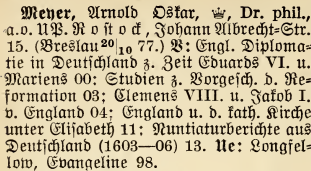 Meyer, Arnold Oskar, ♕, Dr. phil.,
a.o. UP. Rostock, Johann Albrecht-Str.
15. (Breslau 20|10 77.) V: Engl. Diploma-
tie in Deutschland z. Zeit Eduards VI. u.
Mariens 00: Studien z. Vorgesch. d. Re-
formation 03; Clemens VIII. u. Jakob I.
v. England 04; England u. d. kath. Kirche
unter Elisabeth 11; Nuntiaturberichte aus
Deutschland (1603—06) 13. Ue: Longfel-
low, Evangeline 98.